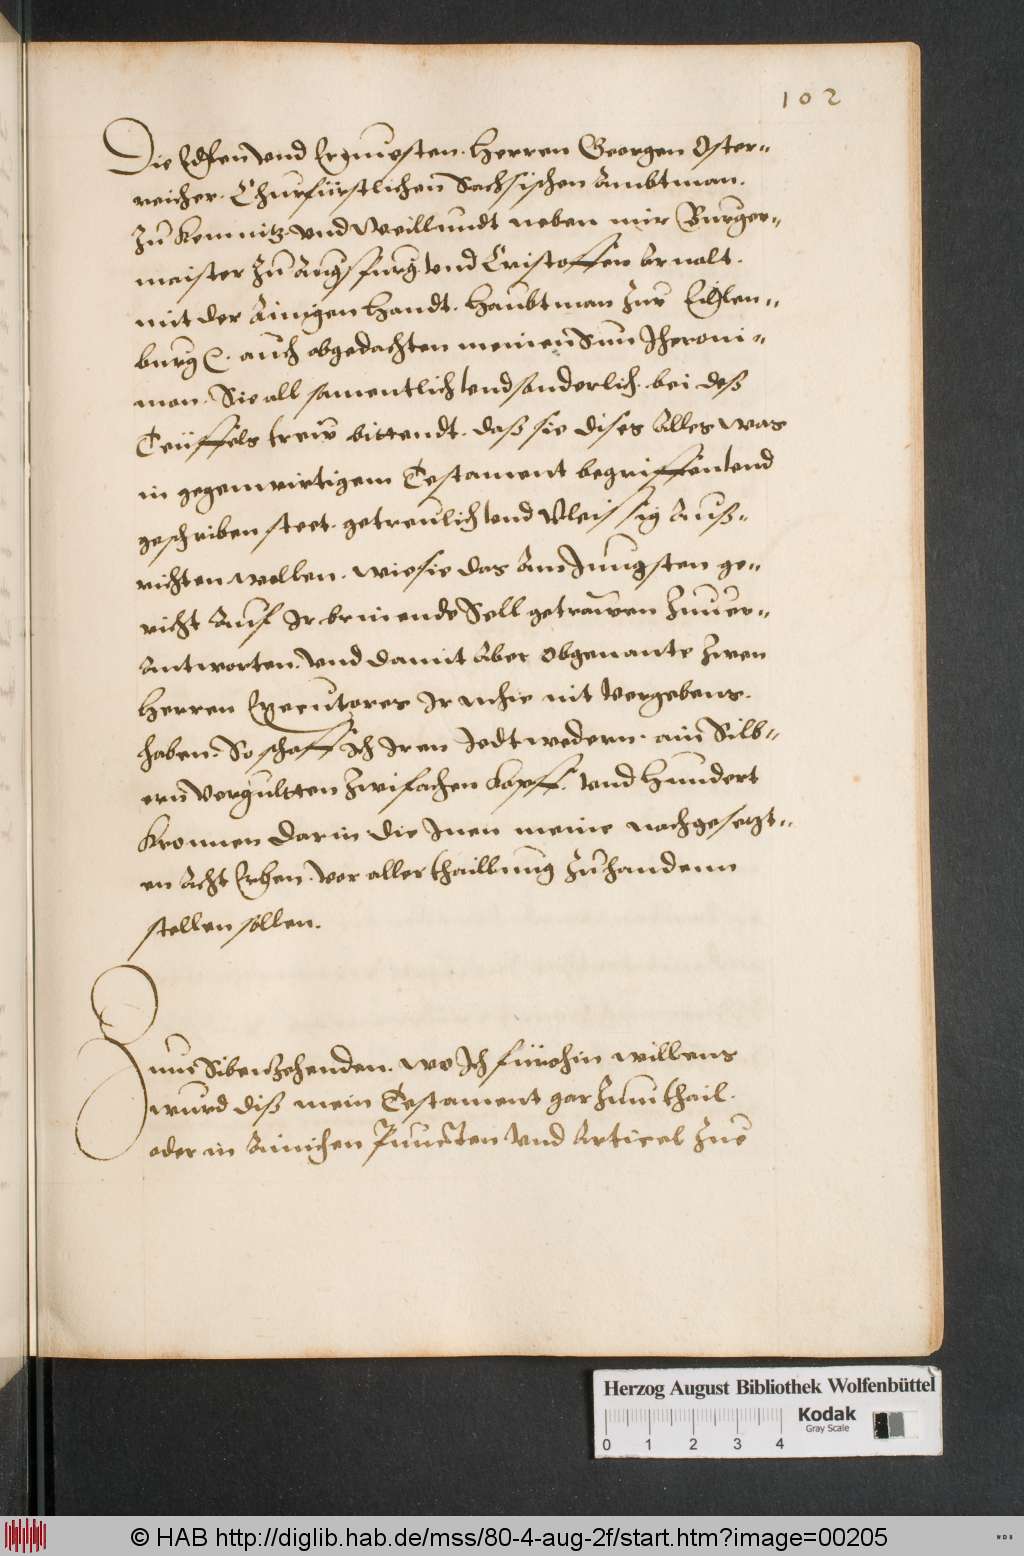 102
Die Edlen vnd Ernuesten. Herren Georgen Öster-
reicher. Churfürstlichen Sachsischen Ambtman.
Zu Kemnitz vnd Weillundt neben mir Burger-
maister zu Augsfurg vnd Cristoffen Arnalt.
mit der Ainigen Handt. Haubtman zur Eißlen-
burg. auch obgedachten meinen Sun Iheroni-
mon. Sie all samentlich vnd sonderlich. bei deß
Teüffels treiw bittendt. daß sie dises Alles was
in gegenwirtigem Testament begriffen vnd
geschriben steet. getreulich vnd Vleissig Auß-
richten wellen. wie sie das Am Jungsten ge-
richt Auf Ir brinende Sell getrawen Zuuer-
Antworten. Vnd damit Aber obgenante zwen
Herren Executores Ir mhie nit Vergebens.
haben. So schaff ich Iren Iedtwedern. ain Silb-
ern Vergultten Zwifachen Kopff. Vnd Hundert
Kronnen darin die Inen meine nachgesetzt-
en Acht Erben. Vor aller thaillung Zuhandenn
stellen sollen.
Zum Sibenzehenden. wo Ich fürohin willens
wurd diß mein Testament gar Zum thail.
oder in Ainichen Puncten Vnd Articel Zue
Herzog August Bibliothek Wolfenbüttel
Kodak
Gray Scale
0 1 2 3 4
© HAB http://diglib.hab.de/mss/80-4-aug-2f/start.htm?image=00205